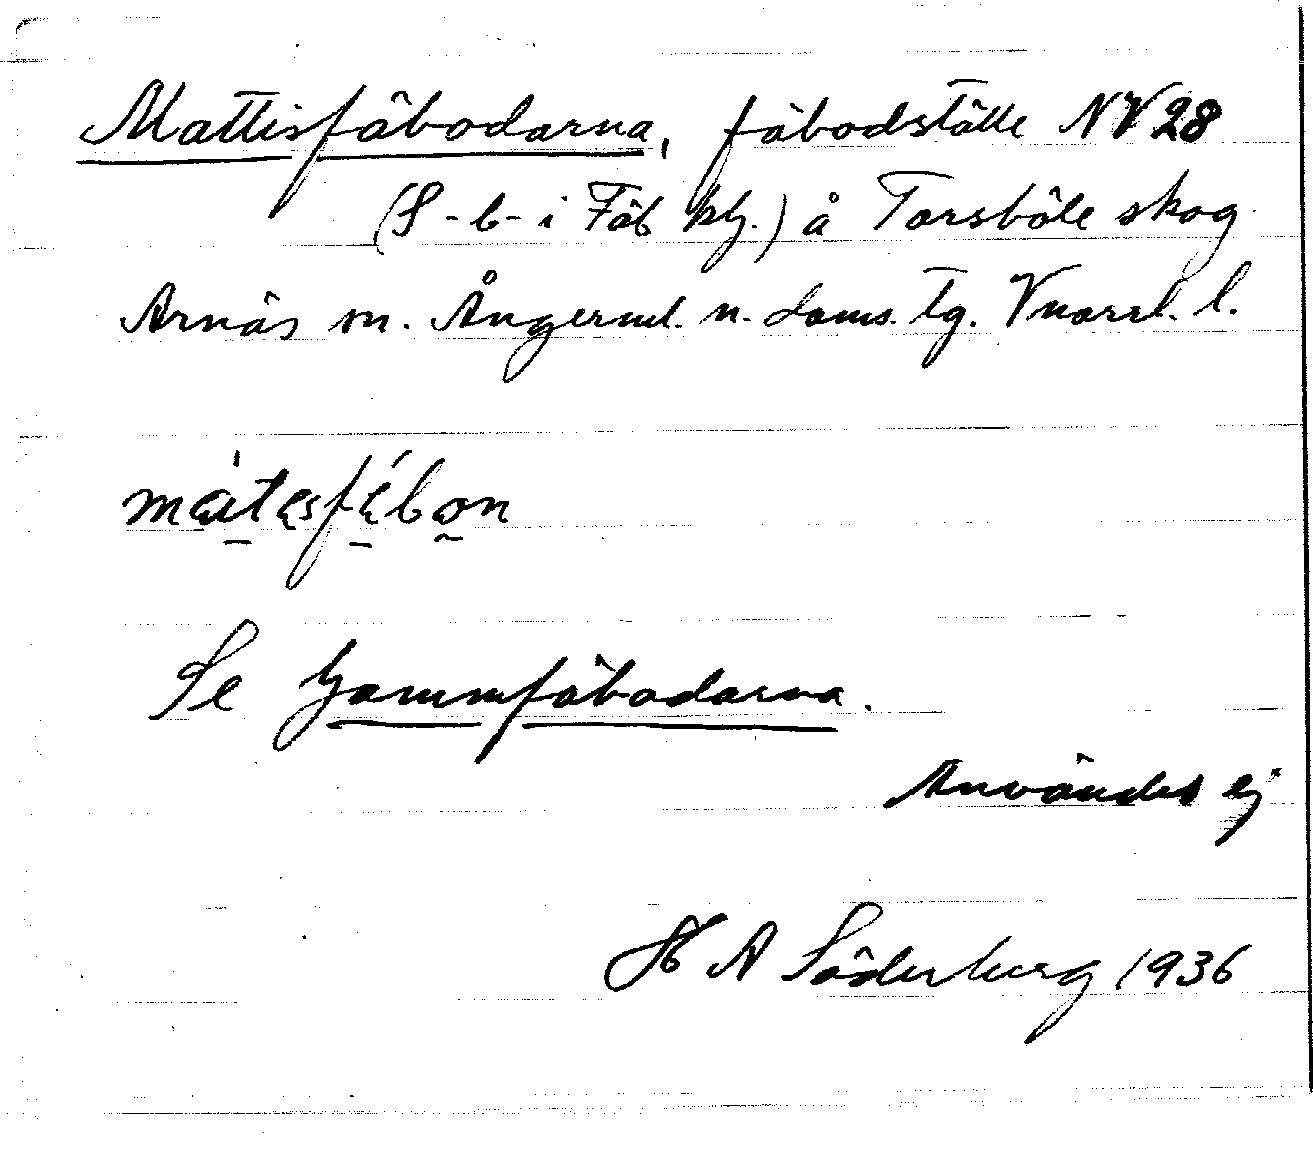 Mattisfäbodarna, fäbodställe NV 28
(S - b - i Fäb kg.) å Torsböle skog
Arnäs sn. Ångerml. n. doms. tg. Vnorrl. l.
Se Gammfäbodarna.
Användes ej
H A Söderberg 1936